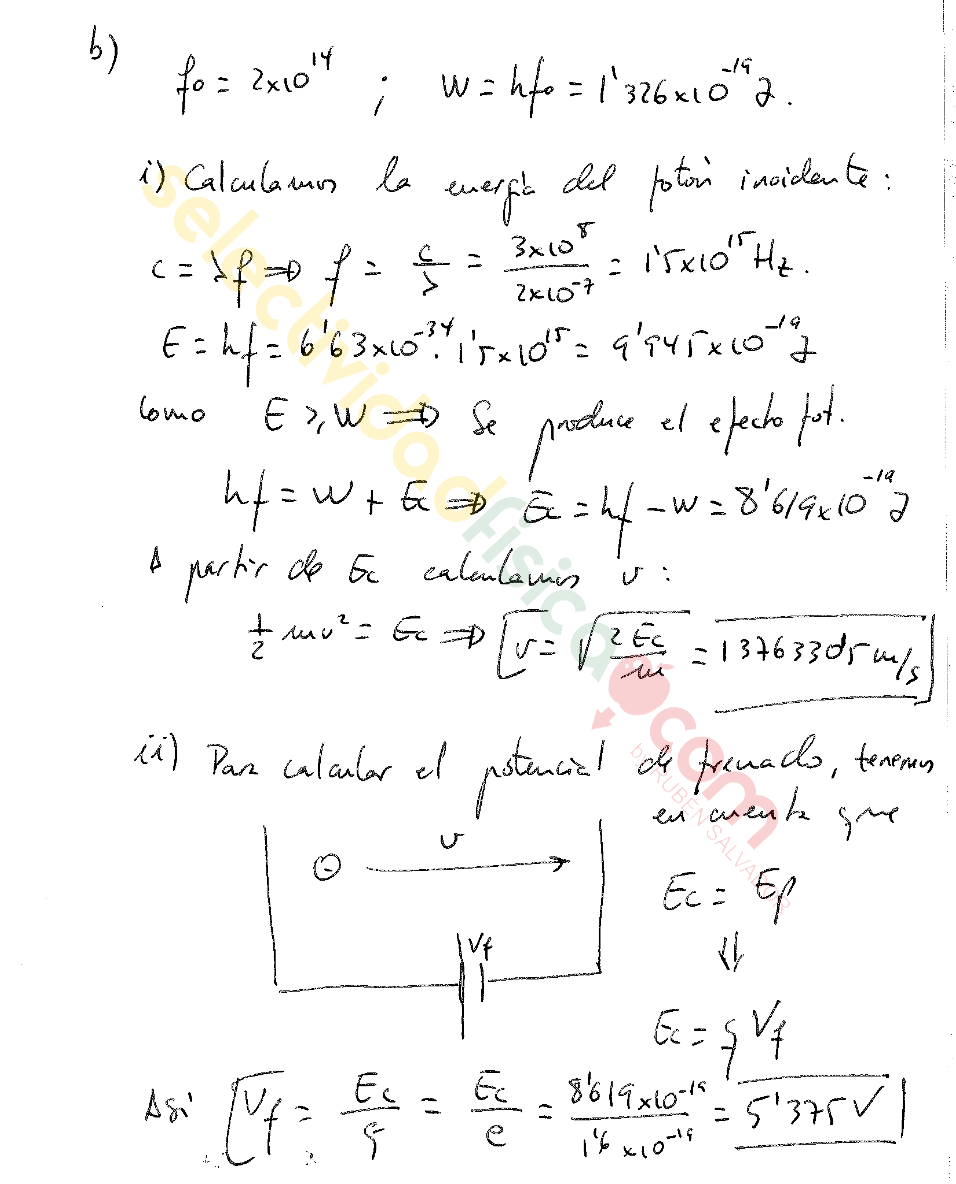 b)
f₀ = 2x10¹⁴ ; W = hf₀ = 1'326x10⁻¹⁹ J.
i) Calculamos la energía del fotón incidente:
c = λf ⇒ f = c/λ = 3x10⁸/2x10⁻⁷ = 1'5x10¹⁵ Hz.
E = hf = 6'63x10⁻³⁴ · 1'5x10¹⁵ = 9'945x10⁻¹⁹ J
Como E ≥ W ⇒ Se produce el efecto fot.
hf = W + Ec ⇒ Ec = hf - W = 8'619x10⁻¹⁹ J
A partir de Ec calculamos v:
½ mv² = Ec ⇒ v = √(2Ec/m) = 1376330'5 m/s
ii) Para calcular el potencial de frenado, tenemos
en cuenta que
v
Ec = Ep
⇓
Vf
Ec = q Vf
Así Vf = Ec/q = Ec/e = 8'619x10⁻¹⁹/1'6x10⁻¹⁹ = 5'375 V
selectividadfisica.com
by RUBÉN SALVADOR